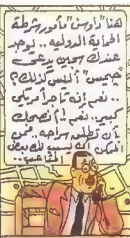 هنا "داوس" مأمور شرطة
الحماية الدولية .. يوجد
عندك سجين يدعى
خميس" أليس كذلك؟
.. نعم إنه تاجر أمريكي
كبير .. نعم ! أنصحك
بأن تطلق سراحه .. فمن
الممكن أن يسبب لك بعض
المتاعب ..